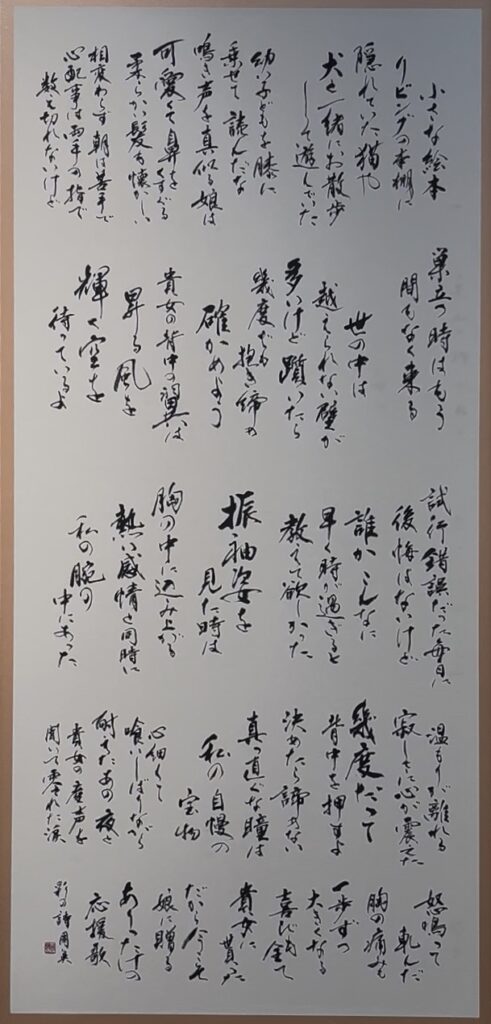 小さな絵本
リビングの本棚に
隠れていた猫や
犬と一緒にお散歩
して遊んでいた
幼い子どもを膝に
乗せて読んだな
鳴き声を真似る娘は
可愛くて鼻をくすぐる
柔らかい髪も懐かしい
相変わらず朝は苦手で
心配事は両手の指で
数え切れないけど
巣立つ時はもう
間もなく来る
世の中は
越えられない壁が
多いけど躓いたら
幾度でも抱き締め
確かめよう
貴女の背中の翼は
昇る風を
輝く空を
待っているよ
試行錯誤だった毎日に
後悔はないけど
誰かこんなに
早く時が過ぎると
教えて欲しかった
振袖姿を
見た時は
胸の中に込み上がる
熱い感情と同時に
私の腕の
中にあった
温もりが離れる
寂しさに心が震えてた
幾度だって
背中を押すよ
決めたら諦めない
真っ直ぐな瞳は
私の自慢の
宝物
心細くて
喰いしばりながら
耐えたあの夜と
貴女の産声を
聞いて零れた涙
怒鳴って
軋んだ
胸の痛みも
一歩ずつ
大きくなる
喜びも全て
貴女に
貰った
だから今こそ
娘に贈る
ありったけの
応援歌